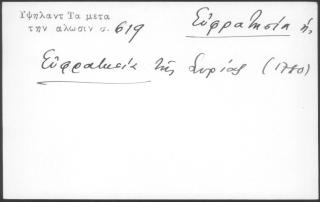 Ὑψηλαντ Τα μετα
την αλωσιν σ. 619
Εὐφρατησία ἡ,
Εὐφρατησία τῆς Συρίας (1780)